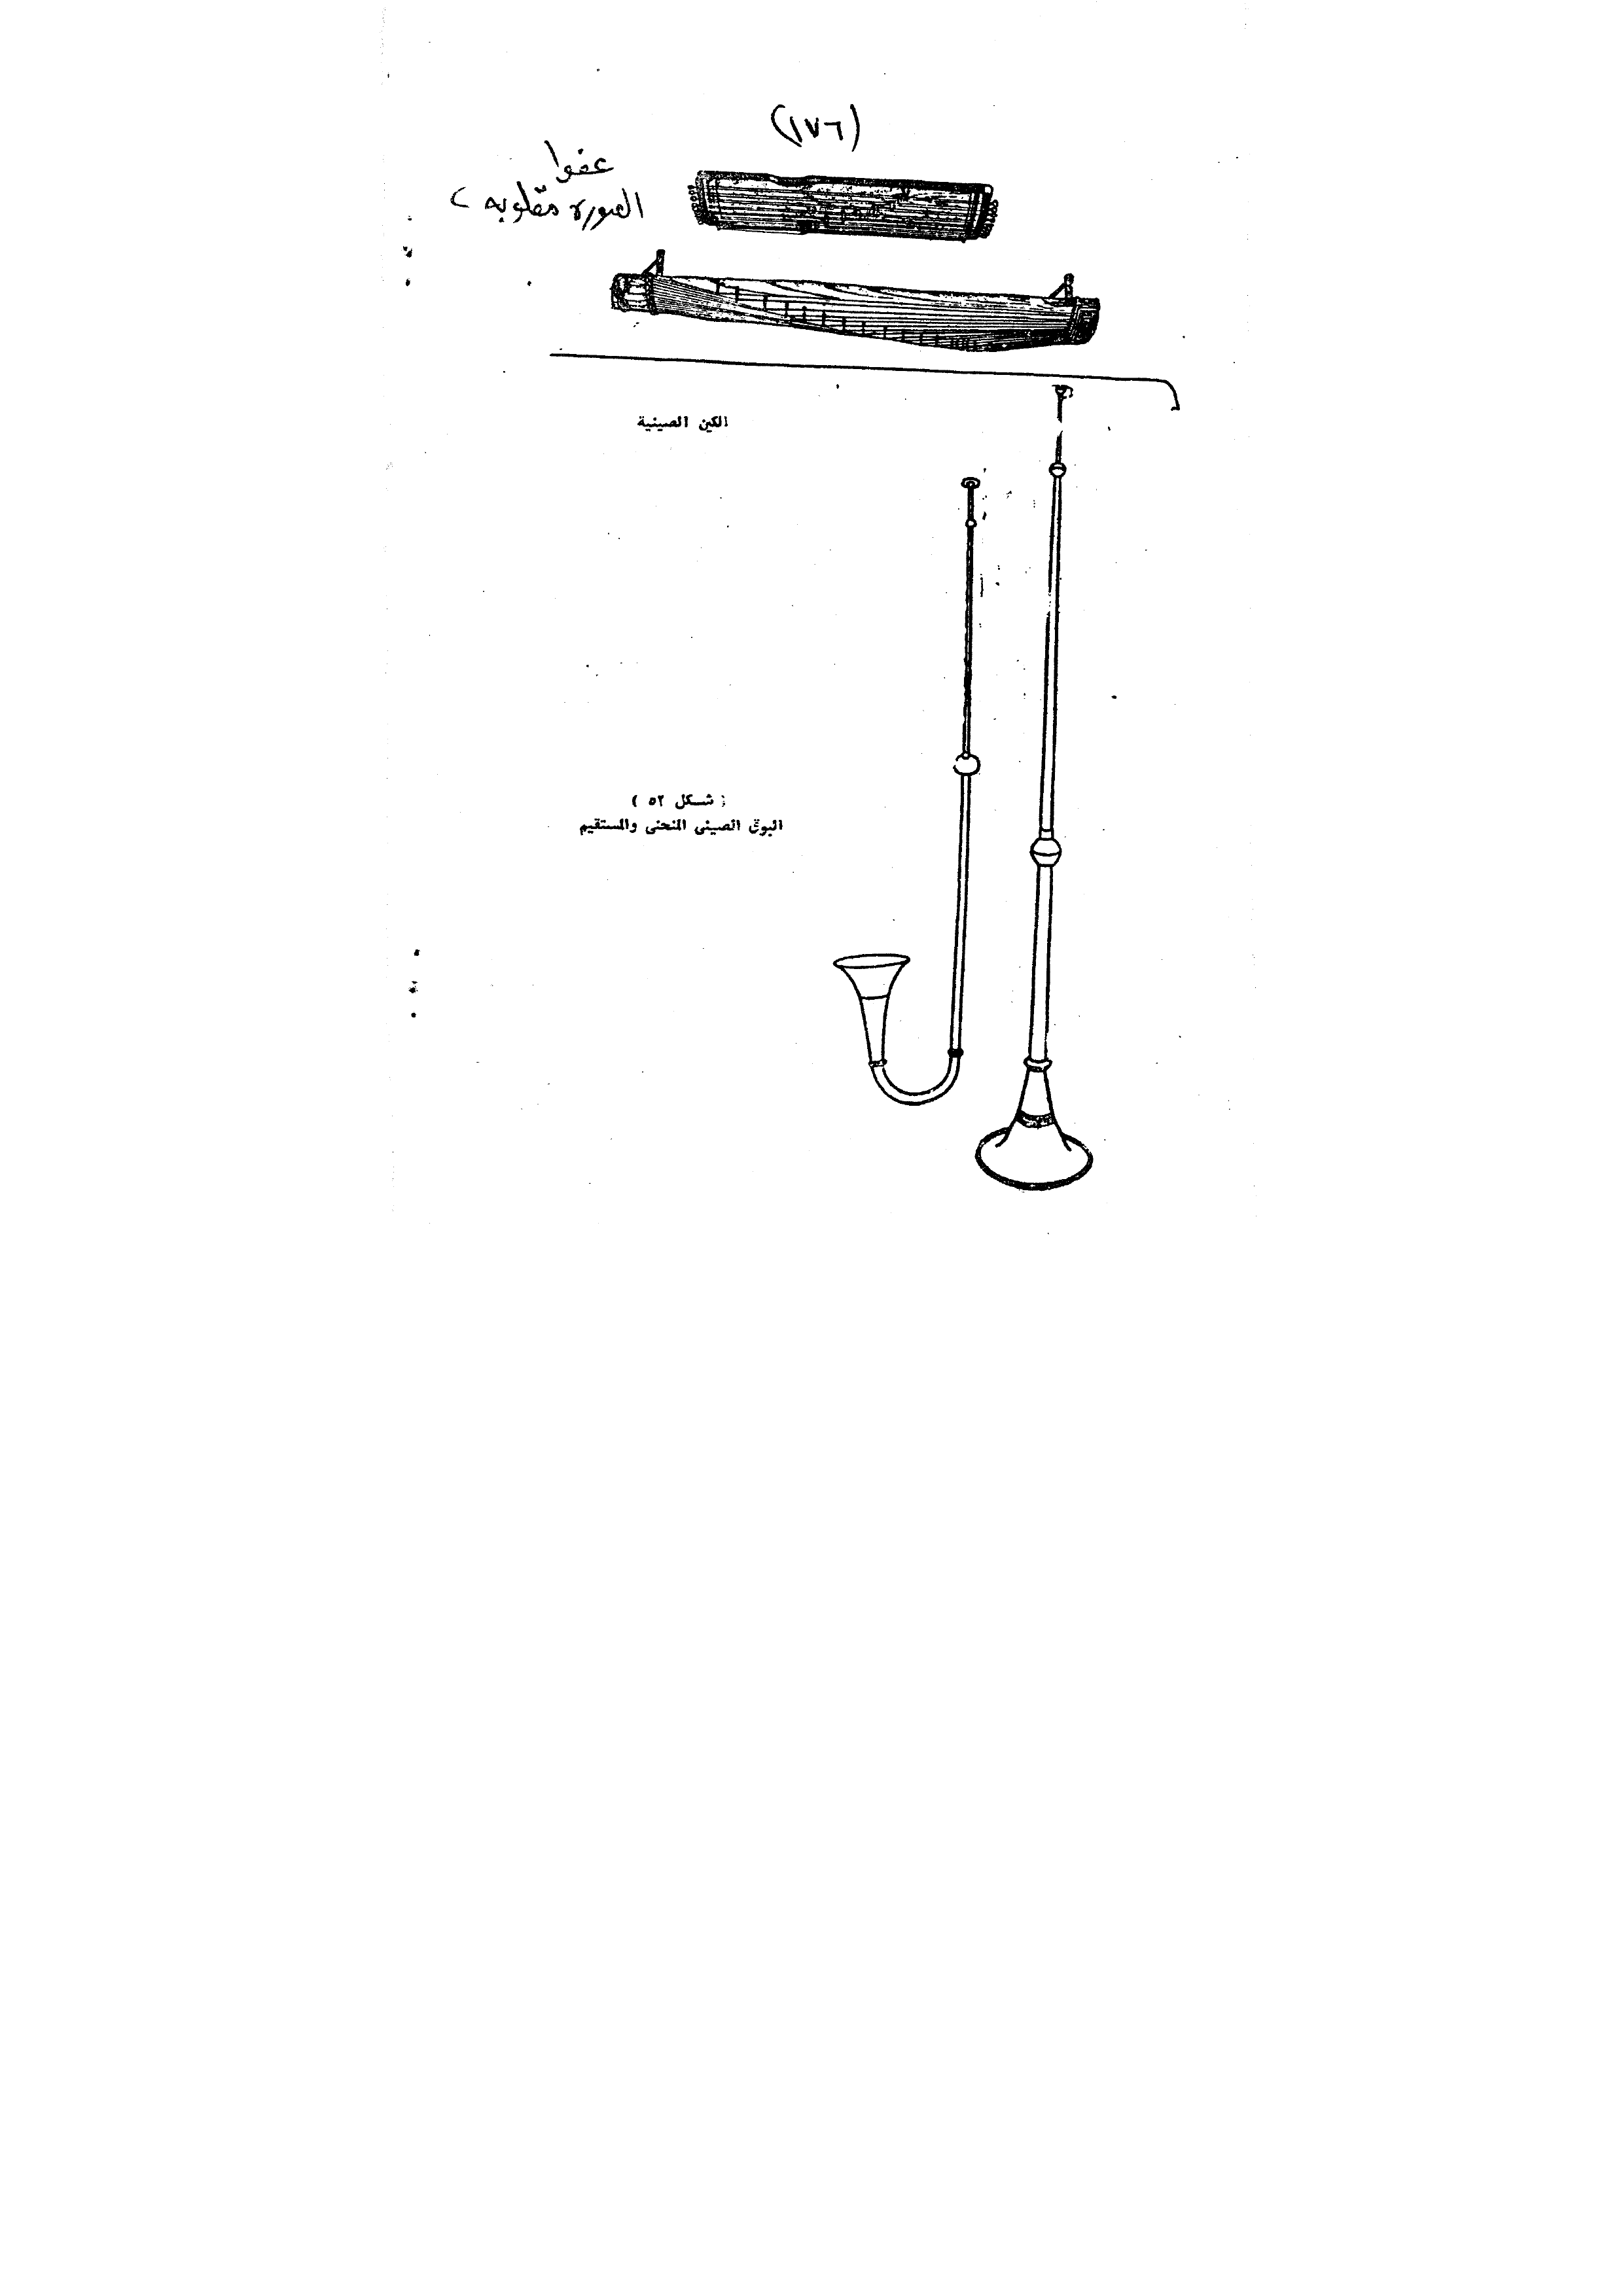 (١٧٦)
عفوا
الصوره مقلوبه
الكين الصينية
( شكل ٥٢ )
البوق الصينى المنحنى والمستقيم